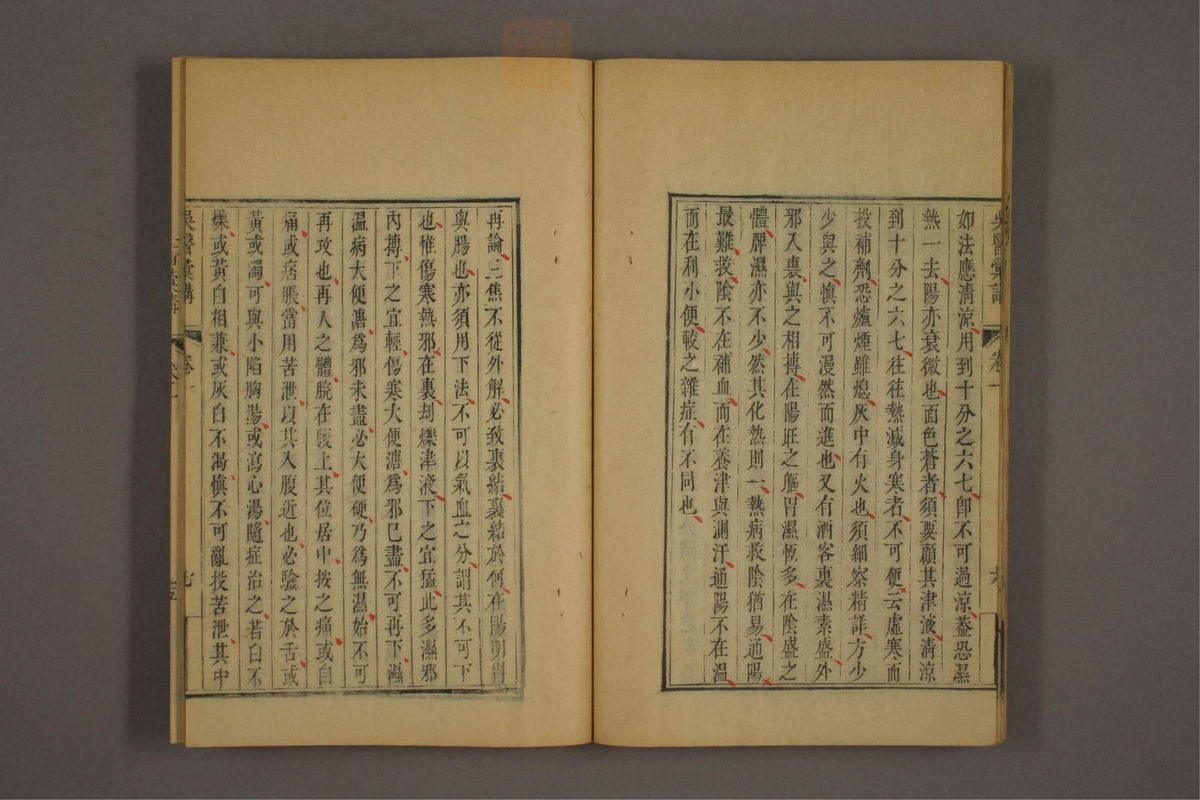 吳醫彙講 卷一
如法應清涼用到十分之六七卽不可過涼蓋恐濕
熱一去陽亦衰微也面色蒼者須要顧其津液清涼
到十分之六七往往熱減身寒者不可便云虛寒而
投補劑恐爐煙雖熄灰中有火也須細察精詳方少
少與之愼不可漫然而進也又有酒客裏濕素盛外
邪入裏與之相搏在陽旺之軀胃濕恆多在陰盛之
體脾濕亦不少然其化熱則一熱病救陰猶易通陽
最難救陰不在補血而在養津與測汗通陽不在溫
而在利小便較之雜症有不同也
再論三焦不從外解必致裏結裏結於何在陽明胃
與腸也亦須用下法不可以氣血之分謂其不可下
也惟傷寒熱邪在裏刼爍津液下之宜猛此多濕邪
內搏下之宜輕傷寒大便溏爲邪已盡不可再下濕
溫病大便溏爲邪未盡必大便硬乃爲無濕始不可
再攻也再人之體脘在腹上其位居中按之痛或自
痛或痞脹當用苦泄以其入腹近也必驗之於舌或
黃或濁可與小陷胸湯或瀉心湯隨症治之若白不
燥或黃白相兼或灰白不渴愼不可亂投苦泄其中
吳醫彙講 卷一 七